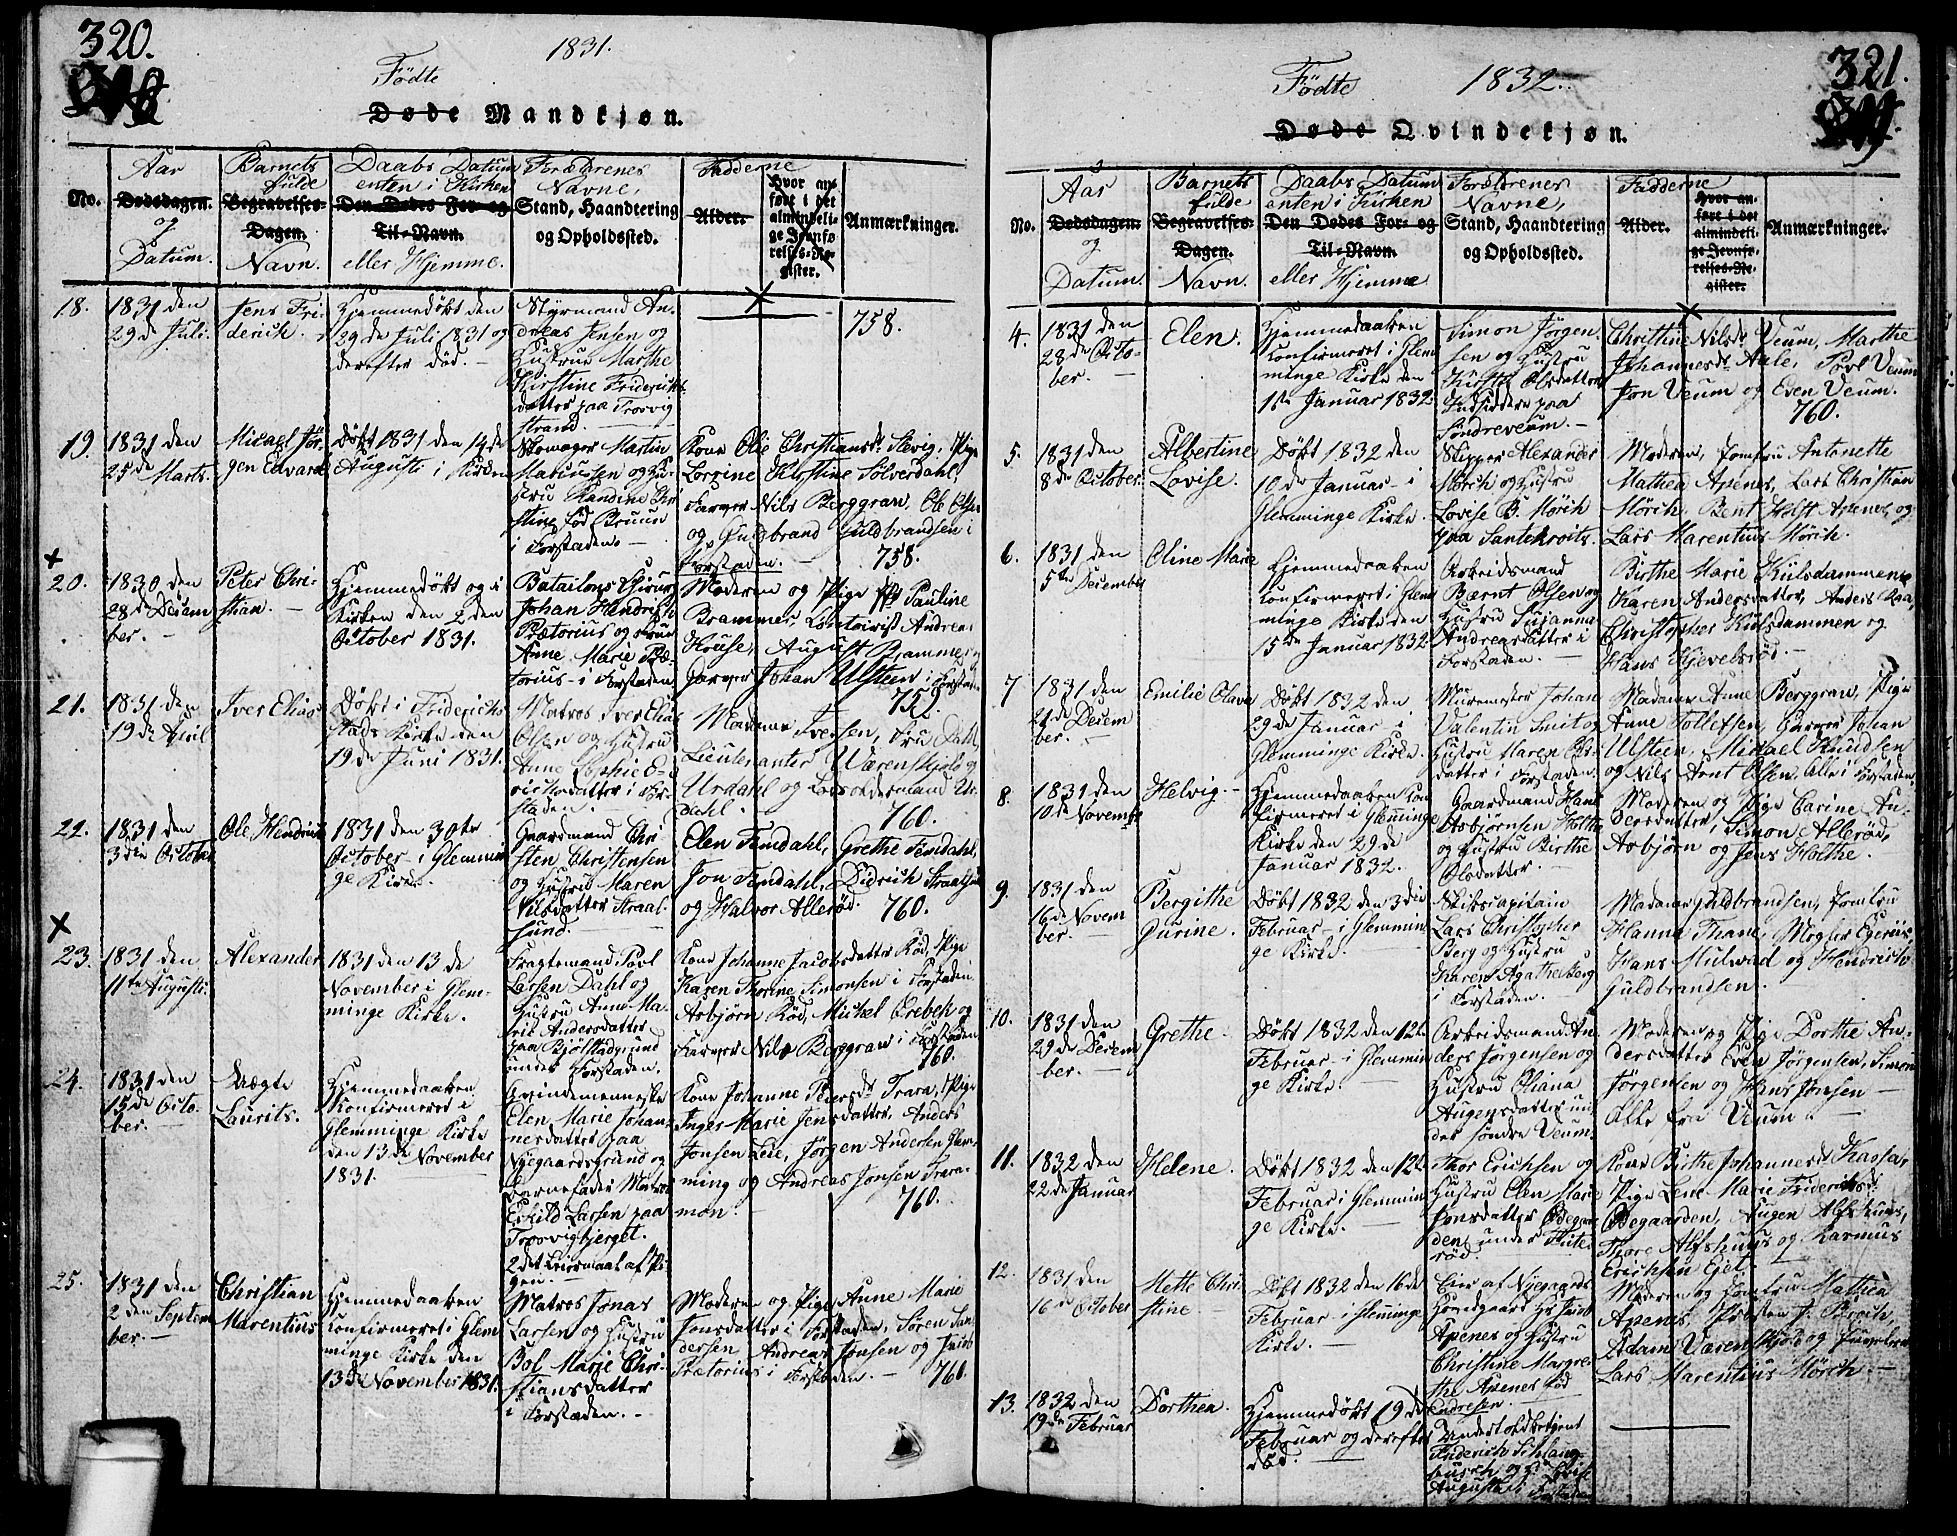 320.
1831.
Fødte
Døde Mandkjøn.
No.
Aar
Dødsdagen.
og
Datum.
Barnets
fulde
Begravelses-
Dagen.
Navn.
Daabs Datum
enten i Kirken
Den Dødes For- og
Til-Navn.
eller Hjemme.
Forældrenes
Navne,
Stand, Haandtering
og Opholdssted.
Fadderne
Alder.
Hvor an-
ført i det
almindeli-
ge Jevnfø-
relses-Re-
gister.
Anmærkninger.
18.
1831 den
29de Juli.
Jens Fri-
derich.
Hjemmedøbt den
29de Juli 1831 og
derefter død.
Styrmand An-
dreas Jensen og
Hustrue Marthe
Kirstine Friderichs-
datter paa Trosvig
strand.
758.
19.
1831 den
25de Marts.
Micael Jør-
gen Edvard
Døbt 1831 den 14de
Augusti i Kirken
Skomager Martin
Mathiissen og Hu-
stru Randine Chri-
stine fød Bruun
i Forstaden.
Kone Olie Christiansdr Slevig, Pige
Lorgine Kirstine Sölverdahl,
Farver Nils Berggran, Ole Olsen
og Guldbrand Guldbrandsen i
Forstaden.
758.
20.
1830 den
28de Decem
ber.
Peter Chri-
stian.
Hjemmedøbt og i
Kirken den 2den
October 1831.
Batailons Chirurg
Johan Hendrich
Prætorius og Frue
Anne Marie Præ-
torius i Forstaden
Moderen og Pige Pauline
Brammer Contoirist Andrea
House, August Brammer og
Garver Johan Ulsteen i Forstaden
759.
21.
1831 den
19de April
Iver Elias
Døbt i Friderich-
stads Kirke den
19de Juni 1831.
Matros Iver Elias
Olsen og Hustru
Anne Sophie E-
richsdatter i For-
staden.
Madame Iversen, Fru Dahl,
Lieutenanter Værenskjold og
Urdahl og Lods oldermand Ur-
dahl
760.
22.
1831 den
3die October
Ole Hendrich
1831 den 30te
October i Glemmin-
ge Kirke.
Gaardmand Chri-
sten Christensen
og Hustru Maren
Nilsdatter Straal-
sund.
Elen Femdahl, Grethe Femdahl,
Jon Femdahl, Didrich Straalsund
og Halvor Allerød.
760.
23.
1831 den
11te Augusti.
Alexander
1831 den 13de
November i Glem-
minge Kirke.
Fragtemand Povl
Larsen Dahl og
Hustru Anne Ma-
rie Andersdatter
paa Bjølstadgrund
under Forstaden.
Kone Johanne Jacobsdatter Rød, Pige
Karen Thorine Simonsen i Forstaden
Asbjørn Rød, Michel Örebek og
Farver Nils Berggran i Forstaden
760.
24.
1831 den
15de Octo-
ber.
Uægte
Laurits.
Hjemmedaaben
Konfirmeret i
Glemminge Kirke
den 13de November
1831.
Qvindemenneske
Elen Marie Johan-
nesdatter paa
Nyegaardsgrund og
barnefader Matros
Eskild Larsen paa
Trosvigbjerget.
2det Leiermaal af Pi-
gen.
Kone Johanne Pedersdr Trara, Pige
Inger Marie Jensdatter, Anders
Jonsen Leie, Jørgen Andersen Glem-
ming og Andreas Jonsen Trara-
mon.
760.
25.
1831 den
2den Septem
ber.
Christian
Marentius
Hjemmedaaben
konfirmeret i Glem
minge Kirke den
13de November 1831.
Matros Jonas
Larsen og Hustru
Bol Marie Chri-
stiansdatter
i Forstaden.
Moderen og Pige Anne Marie
Jonsdatter i Forstaden, Søren San-
dersen Andreas Jonsen og Jacob
Prætorius i Forstaden.
761.
321.
Fødte 1832.
Døde Qvindekjøn.
No.
Aar
Dødsdagen.
og
Datum.
Barnets
fulde
Begravelses-
Dagen.
Navn.
Daabs Datum
enten i Kirken
Den Dødes For- og
Til-Navn.
eller Hjemme
Forældrenes
Navne,
Stand, Haandtering
og Opholdssted.
Fadderne
Alder.
Hvor an-
ført i det
almindeli-
ge Jevnfø-
relses-Re-
gister.
Anmærkninger.
4.
1831 den
28de Octo-
ber.
Elen.
Hjemmedaaben
konfirmeret i Glem
minge Kirke den
1ste Januar 1832
Simon Jørgen-
sen og Hustru
Kirsti Olsdatter
Indsiddere paa
Søndreveum.
Christine Nilsdr Veum, Marthe
Johannesdr Aale, Povl Veum
Jon Veum og Even Veum.
760.
5.
1831 den
8de October.
Albertine
Lovise.
Døbt 1832 den
10de Januar i
Glemminge Kirke.
Skipper Alexander
Mörch og Hustru
Lovise B. Mörch
paa Sanktkroits.
Moderen, Jomfru Antonette
Mathea Apenes, Lars Christian
Mörch, Bent Holst Apenes og
Lars Marentius Mörch.
6.
1831 den
5te December
Oline Marie
Hjemmedaaben
konfirmeret i Glem
minge Kirke den
15de Januar 1832
Arbeidsmand
Bærnt Olsen og
Hustru Susanna
Andreasdatter i
Forstaden.
Birthe Marie Kiilsdammen,
Karen Andersdatter, Anders Raa,
Christopher Kiilsdammen og
Hans Hjevelsrød.
7
1831 den
21de Decem
ber.
Emilie Olava
Døbt 1832 den
29de Januar i
Glemminge Kirke.
Muremester Johan
Valentin Smit og
Hustru Maren Chri-
datter i Forstaden.
Madame Anne Berggran, Pige
Anne Tollefsen, Garver Johan
Ulsteen, Micael Knudsen
og Nils Arnt Olsen, Alle i Forstaden.
8.
1831 den
10de November
Helvig.
Hjemmedaaben kon
firmeret i Glemminge
Kirke den 29de
Januar 1832.
Gaardmand Hans
Asbjørnsen Holthe
og Hustru Birthe
Olsdatter.
Moderen og Pige Carine An-
dersdatter, Simon Allerød,
Asbjørn og Jens Holthe.
9.
1831 den
16de Novem
ber.
Bergithe
Gurine.
Døbt 1832 den 3die
Februar i Glemmin-
ge Kirke.
Skibscapitain
Lars Christopher
Berg og Hustru
Karen Agathe Berg
i Forstaden.
Madame Guldbrandsen, Jomfru
Hanna Thane, Mægler Egeriis,
Hans Mulvad og Hendrich
Guldbrandsen.
10.
1831 den
29de Decem
ber.
Grethe
Døbt 1832 den 12te
Februar i Glemmin
ge Kirke.
Arbeidsmand An-
ders Jørgensen og
Hustru Oliana
Augensdatter un-
der søndre Veum.
Moderen og Pige Dorthe An-
dersdatter Even Jørgensen, Simon
Jørgensen og Hans Jonsen
Alle fra Veum.
11.
1832 den
22de Januar
Helene.
Døbt 1832 den 12te
Februar i Glemmin
ge Kirke.
Thor Erichsen og
Hustru Elen Marie
Jonsdatter Ødegaar
den, under Fiite-
rød.
Kone Birthe Johannesdr Kassa,
Pige Lene Marie Friderichsdr
Ødegaarden, Augen Alfshuus,
Thore Alfshuus og Rasmus
Erichsen Ejet.
12.
1831 den
16de October
Mette Chri
stine.
Døbt 1832 den 16de
Februar i Glemminge
Kirke.
Eier af Nyegaards
Hovedgaard Hr Jacob
Apenes og Hustru
Christine Margre-
the Apenes fød
Endresen.
Moderen og Jomfru Mathea
Apenes, Provsten J. Broch
Adam Værenskjold og
Lars Marentius Mörch.
13.
1832 den
19de Februar
Dorthea.
Hjemmedøbt 19de
Februar og derefter
død.
Undertoldbetjent
Friderich Schlang-
busch og Hu Lovise
Augusta i Forstaden